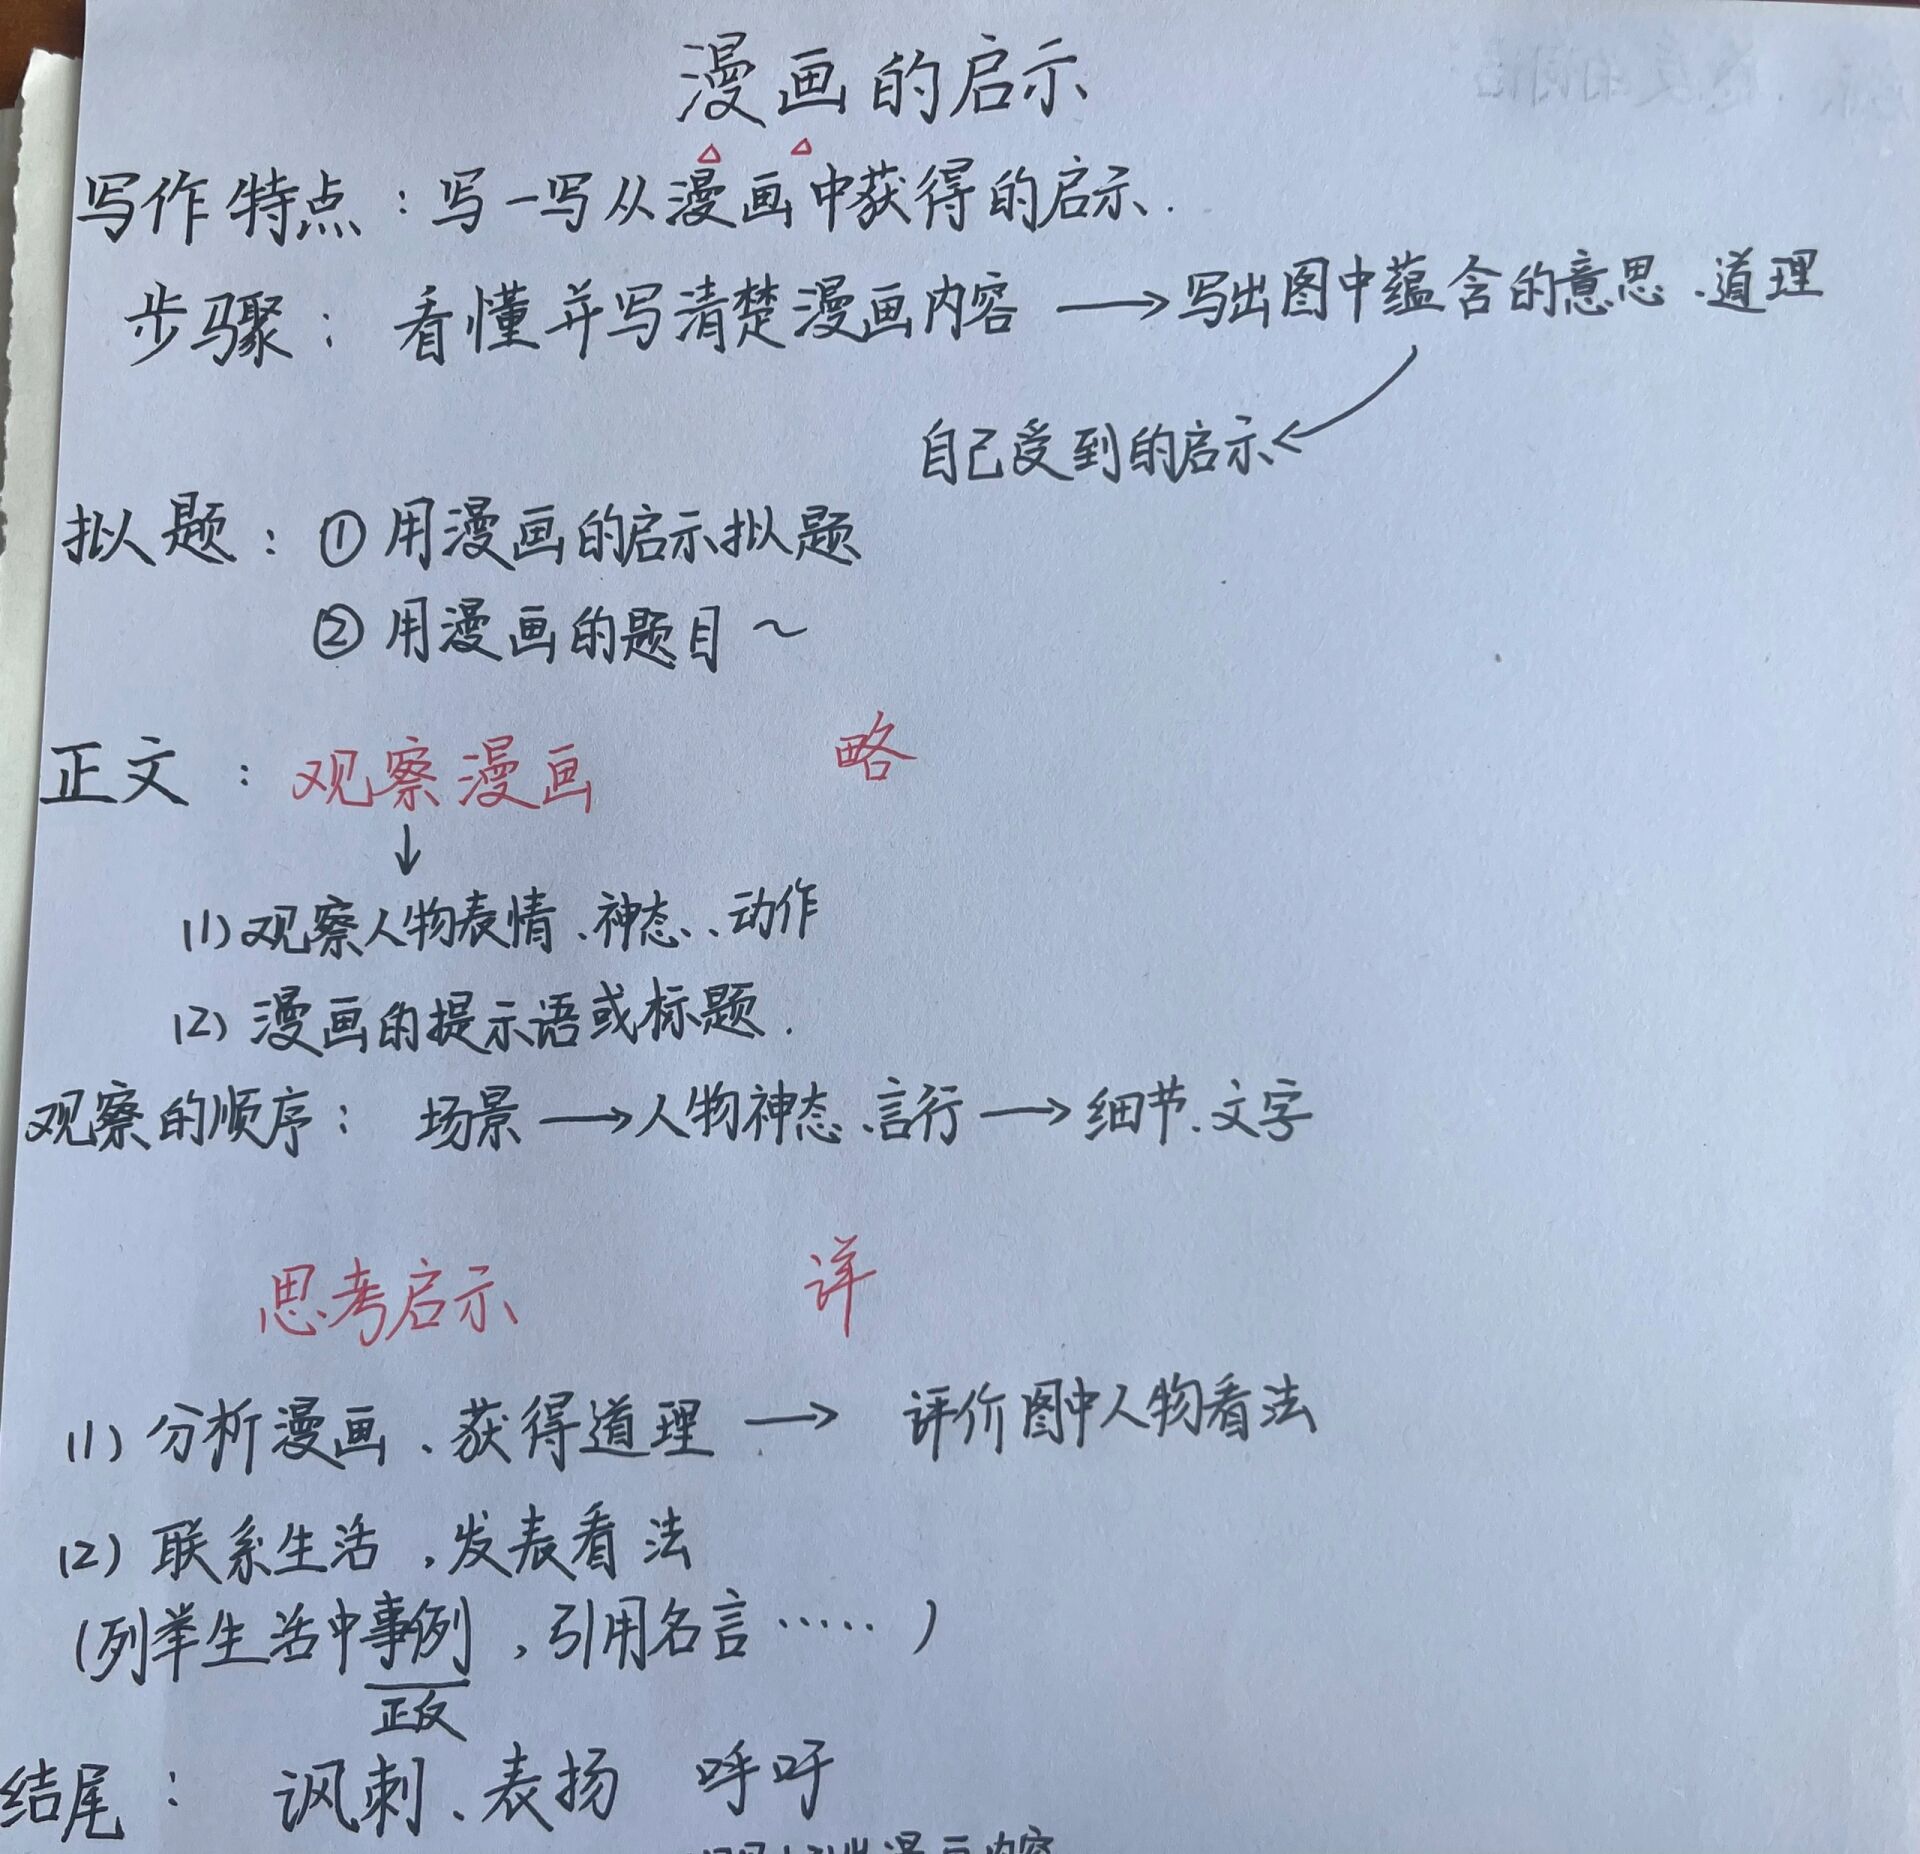 漫画的启示
写作特点：写一写从漫画中获得的启示.
步骤：看懂并写清楚漫画内容 → 写出图中蕴含的意思、道理
自己受到的启示
拟题：① 用漫画的启示拟题
② 用漫画的题目～
正文：观察漫画 略
(1) 观察人物表情、神态、动作
(2) 漫画的提示语或标题.
观察的顺序：场景 → 人物神态、言行 → 细节、文字
思考启示 详
(1) 分析漫画、获得道理 → 评价图中人物看法
(2) 联系生活，发表看法
(列举生活中事例，引用名言……)
正反
结尾：讽刺、表扬 呼吁